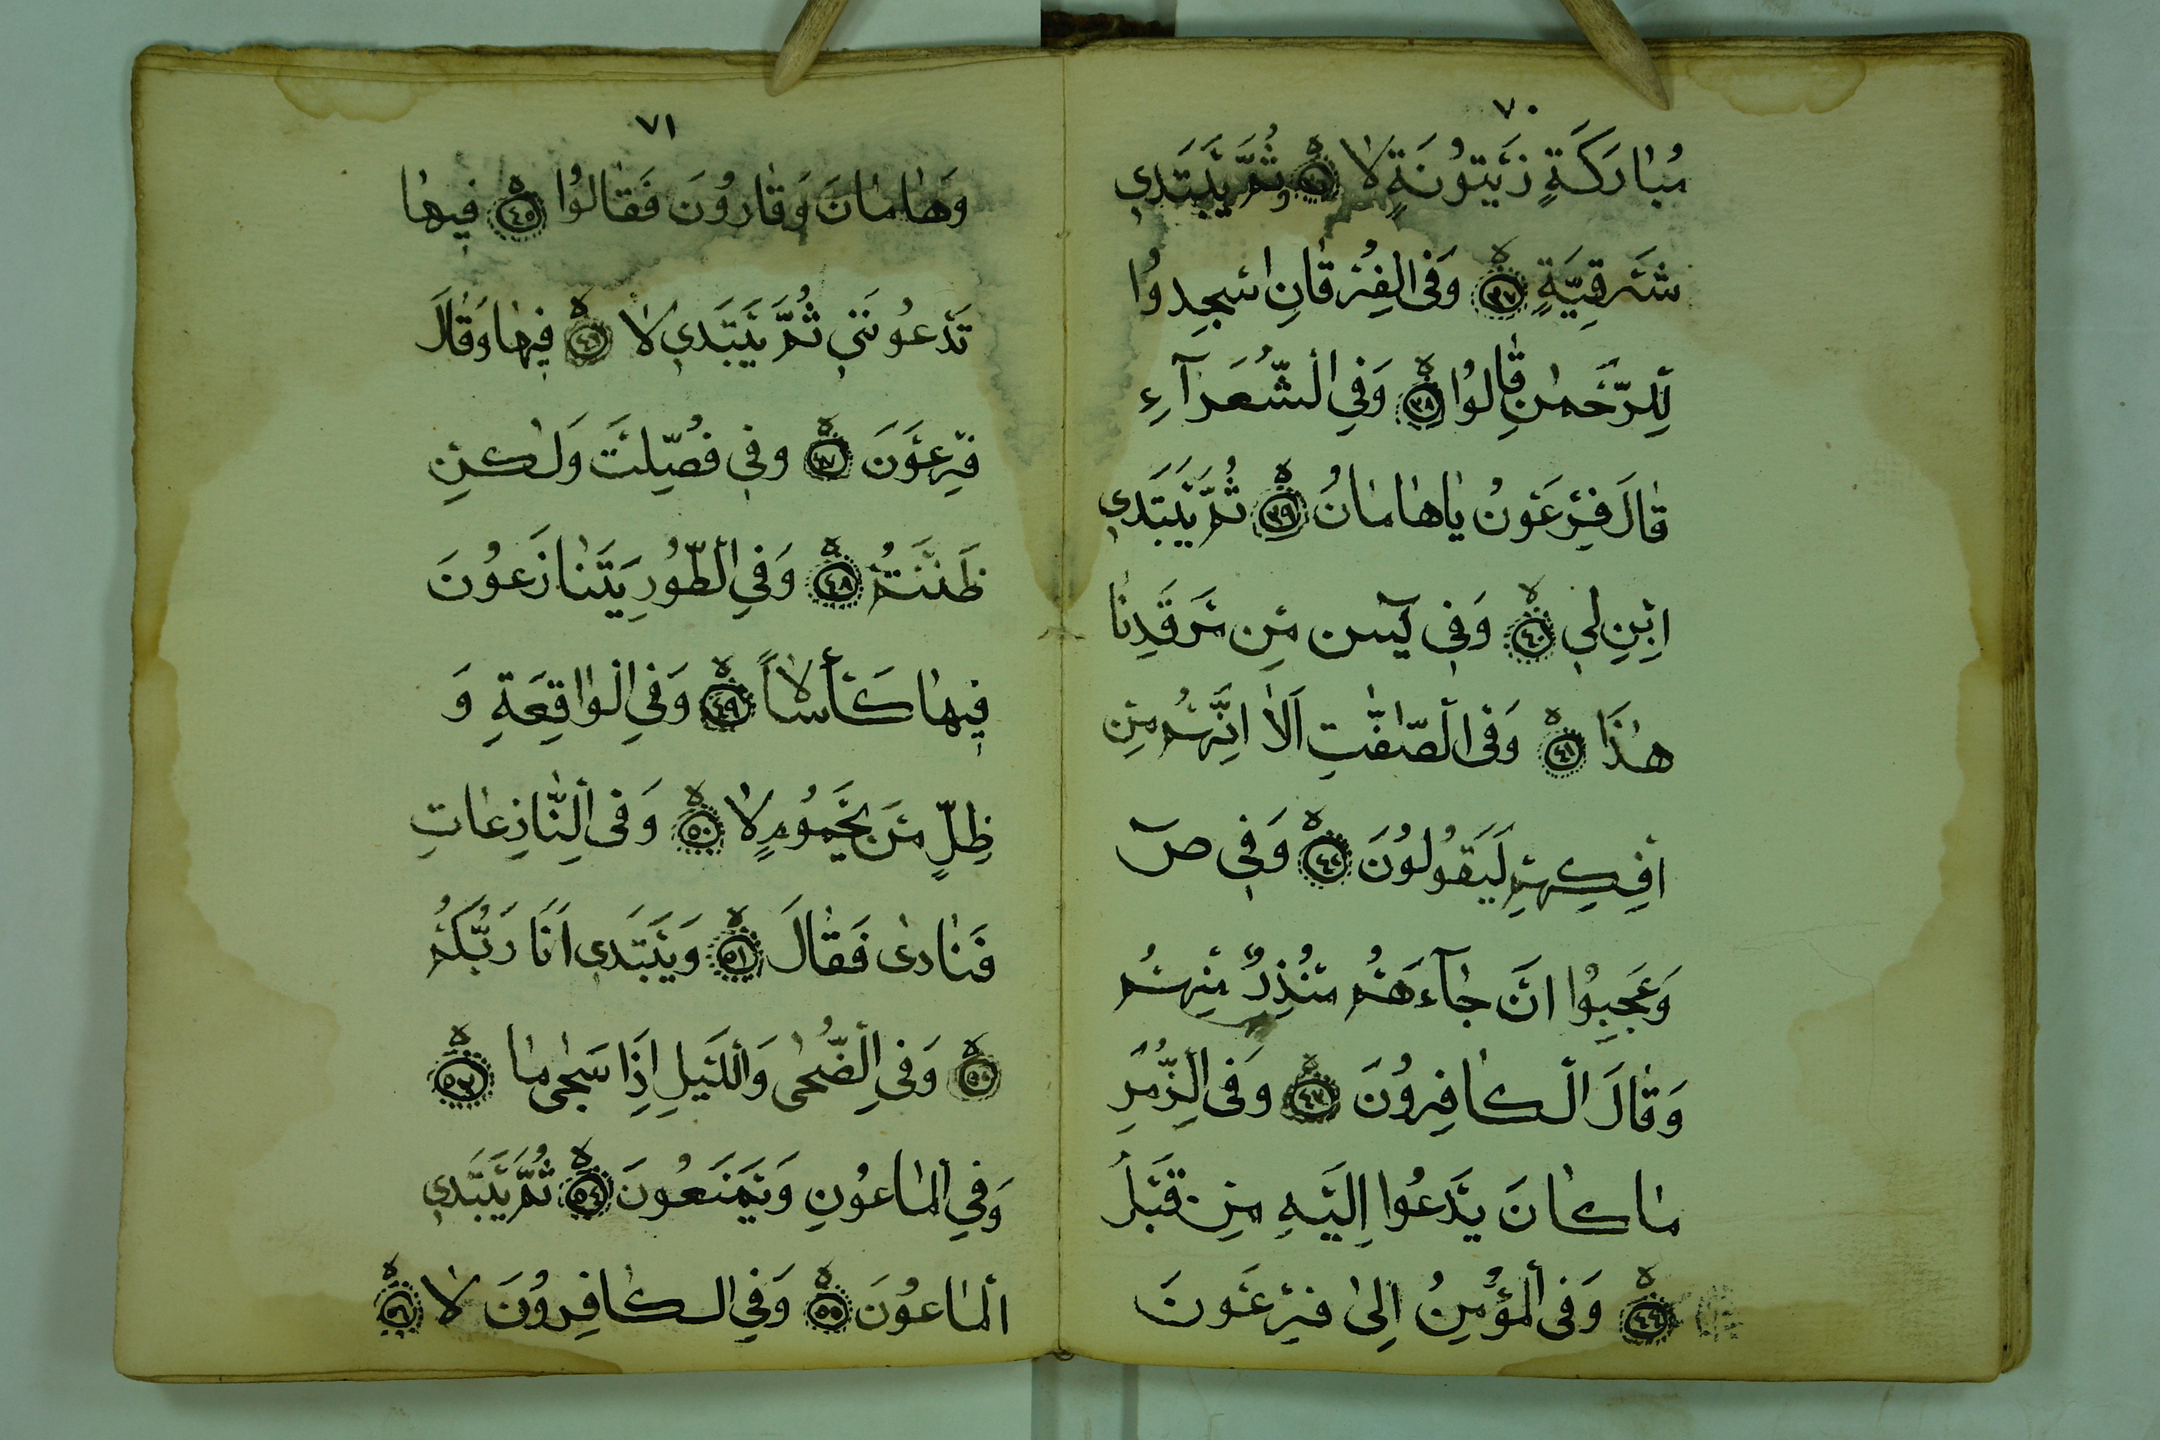 ٧٠
مُبَارَكَةٍ زَيْتُونَةٍ لَا ٣٦ ثُمَّ يَبْتَدِي
شَرْقِيَّةٍ ٣٧ وَفِى الْفُرْقَانِ اسْجُدُوا
لِلرَّحْمٰنِ قَالُوا ٣٨ وَفِي الشُّعَرَآءِ
قَالَ فِرْعَوْنُ يَاهَامَانُ ٣٩ ثُمَّ يَبْتَدِي
ابْنِ لِي ٤٠ وَفِي يٓسن مِنْ مَرْقَدِنَا
هٰذَا ٤١ وَفِى الصّٰفّٰتِ اَلَا اِنَّهُمْ مِنْ
اِفْكِهِمْ لَيَقُولُونَ ٤٢ وَفِي صٓ
وَعَجِبُوا اَنْ جَآءَهُمْ مُنْذِرٌ مِنْهُمْ
وَقَالَ الْكَافِرُونَ ٤٣ وَفِى الزُّمَرِ
مَا كَانَ يَدْعُوا اِلَيْهِ مِنْ قَبْلُ
٤٤ وَفِى الْمُؤْمِنُ اِلٰى فِرْعَوْنَ
٧١
وَهَامَانَ وَقَارُونَ فَقَالُوا ٤٥ فِيهَا
تَدْعُونَنِي ثُمَّ يَبْتَدِي لَا ٤٦ فِيهَا وَقَالَ
فِرْعَوْنَ ٤٧ وَفِي فُصِّلَتْ وَلٰكِنْ
ظَنَنْتُمْ ٤٨ وَفِي الطُّورِ يَتَنَازَعُونَ
فِيهَا كَأْسًا لَاً ٤٩ وَفِي الْوَاقِعَةِ وَ
ظِلٍّ مِنْ يَحْمُومٍ لَا ٥٠ وَفِى النَّازِعَاتِ
فَنَادٰى فَقَالَ ٥١ وَيَبْتَدِى اَنَا رَبُّكُمْ
٥٢ وَفِي الضُّحٰى وَاللَّيْلِ اِذَا سَجٰى مَا ٥٣
وَفِي الْمَاعُونِ وَيَمْنَعُونَ ٥٤ ثُمَّ يَبْتَدِي
الْمَاعُونَ ٥٥ وَفِي الْكَافِرُونَ لَا ٥٦